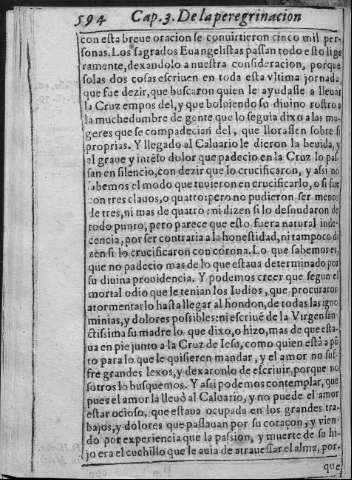 594 Cap. 3. De la peregrinacion
con esta breue oracion se conuirtieron cinco mil per-
sonas. Los sagrados Euangelistas passan todo esto lige
ramente, dexandolo a nuestra consideracion, porque
solas dos cosas escriuen en toda esta vltima jornada,
que fue dezir, que buscaron quien le ayudasse a lleuar
la Cruz empos del, y que boluiendo su diuino rostro a
la muchedumbre de gente que lo seguia dixo a las mu-
geres que se compadecian del, que llorassen sobre si
proprias. Y llegado al Caluario le dieron la beuida, y
el graue y intenso dolor que padecio en la Cruz lo pas-
san en silencio, con dezir que lo crucificaron, y assi no
sabemos el modo que tuuieron en crucificarlo, o si fue
con tres clauos, o quatro: pero no pudieron ser menos
de tres, ni mas de quatro: ni dizen si lo desnudaron de
todo punto, pero parece que esto fuera natural inde-
cencia, por ser contraria a la honestidad, ni tampoco di
zen si lo crucificaron con corona. Lo que sabemos es,
que no padecio mas de lo que estaua determinado por
su diuina prouidencia. Y podemos creer que segun el
mortal odio que le tenian los Iudios, que procuraron
atormentarlo hasta llegar al hondon, de todas las igno
minias, y dolores possibles: ni escriuē de la Virgen san-
ctissima su madre lo que dixo, o hizo, mas de que esta-
ua en pie junto a la Cruz de Iesu, como quien està a pū
to para lo que le quisieren mandar, y el amor no suf-
fre grandes lexos, y dexaronlo de escriuir, porque no
sotros lo busquemos. Y assi podemos contemplar, que
pues el amor la lleuò al Caluario, y no puede el amor
estar ocioso, que estaua ocupada en los grandes tra-
bajos, y dolores que passauan por su coraçon, y vien-
do por experiencia que la passion, y muerte de su hi-
jo era el cuchillo que le auia de atrauessar el alma, por-
que